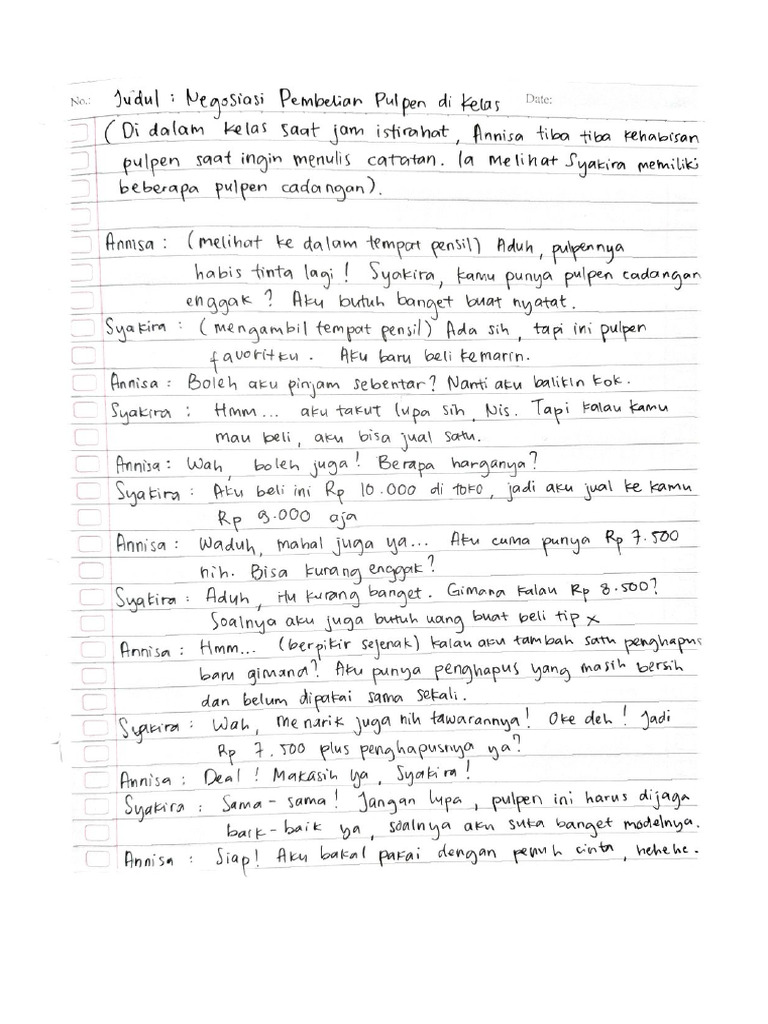 No.: Judul : Negosiasi Pembelian Pulpen di Kelas Date:
(Di dalam kelas saat jam istirahat, Annisa tiba tiba kehabisan
pulpen saat ingin menulis catatan. Ia melihat Syakira memiliki
beberapa pulpen cadangan).
Annisa : (melihat ke dalam tempat pensil) Aduh, pulpennya
habis tinta lagi! Syakira, kamu punya pulpen cadangan
enggak? Aku butuh banget buat nyatat.
Syakira : (mengambil tempat pensil) Ada sih, tapi ini pulpen
favoritku. Aku baru beli kemarin.
Annisa : Boleh aku pinjam sebentar? Nanti aku balikin kok.
Syakira : Hmm... aku takut lupa sih, Nis. Tapi kalau kamu
mau beli, aku bisa jual satu.
Annisa : Wah, boleh juga! Berapa harganya?
Syakira : Aku beli ini Rp 10.000 di toko, jadi aku jual ke kamu
Rp 9.000 aja
Annisa : Waduh, mahal juga ya... Aku cuma punya Rp 7.500
nih. Bisa kurang enggak?
Syakira : Aduh, itu kurang banget. Gimana kalau Rp 8.500?
Soalnya aku juga butuh uang buat beli tip x
Annisa : Hmm... (berpikir sejenak) kalau aku tambah satu penghapus
baru gimana? Aku punya penghapus yang masih bersih
dan belum dipakai sama sekali.
Syakira : Wah, menarik juga nih tawarannya! Oke deh! Jadi
Rp 7.500 plus penghapusnya ya?
Annisa : Deal! Makasih ya, Syakira!
Syakira : Sama-sama! Jangan lupa, pulpen ini harus dijaga
baik-baik ya, soalnya aku suka banget modelnya.
Annisa : Siap! Aku bakal pakai dengan penuh cinta, hehehe.